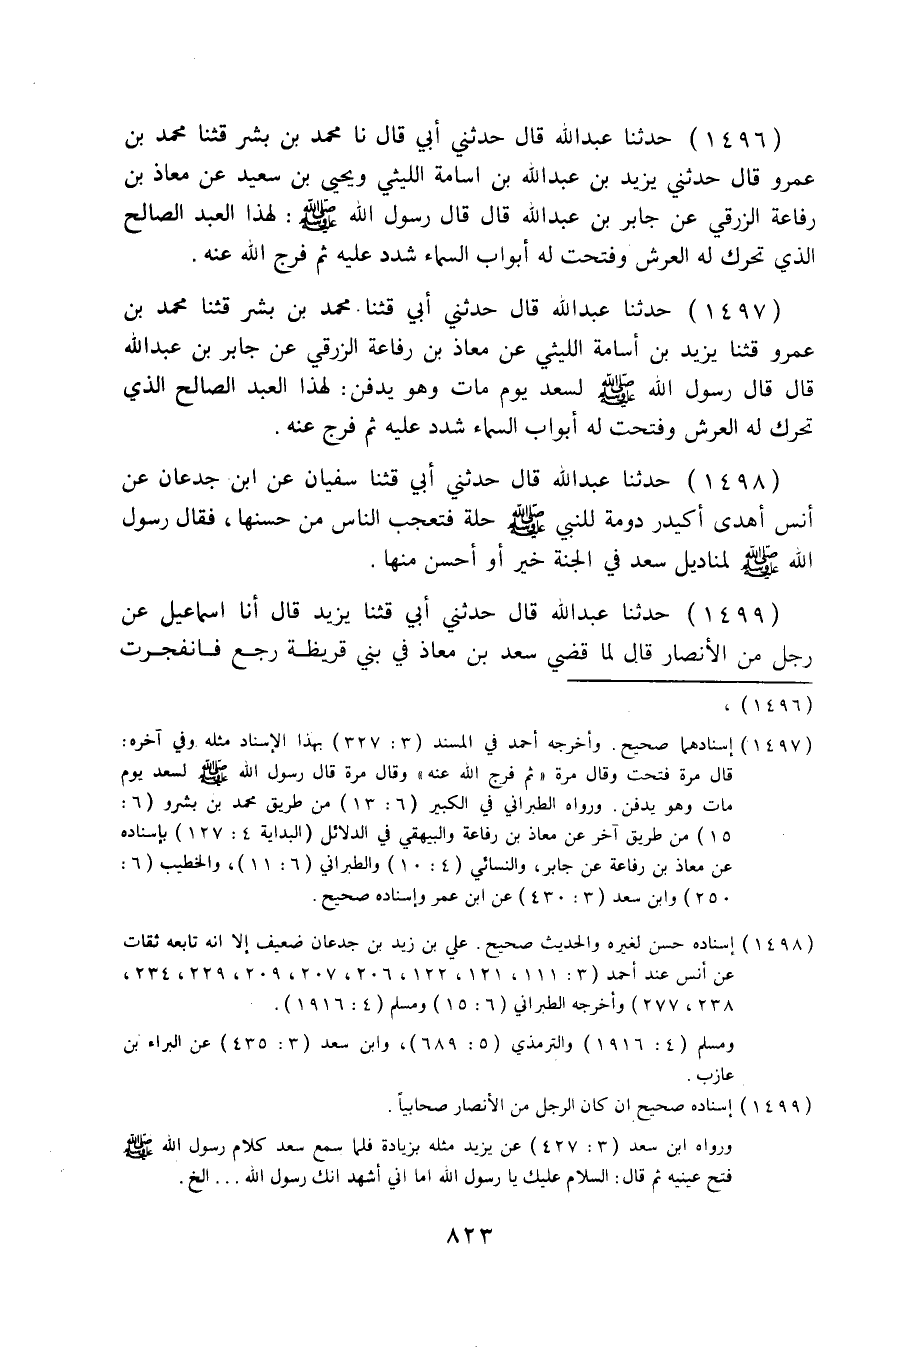 (١٤٩٦) حدثنا عبدالله قال حدثني أبي قال نا محمد بن بشر قثنا محمد بن
عمرو قال حدثني يزيد بن عبدالله بن اسامة الليثي ويحيى بن سعيد عن معاذ بن
رفاعة الزرقي عن جابر بن عبدالله قال قال رسول الله ﷺ : لهذا العبد الصالح
الذي تحرك له العرش وفتحت له أبواب السماء شدد عليه ثم فرج الله عنه .
(١٤٩٧) حدثنا عبدالله قال حدثني أبي قثنا محمد بن بشر قثنا محمد بن
عمرو قثنا يزيد بن أسامة الليثي عن معاذ بن رفاعة الزرقي عن جابر بن عبدالله
قال قال رسول الله ﷺ لسعد يوم مات وهو يدفن: لهذا العبد الصالح الذي
تحرك له العرش وفتحت له أبواب السماء شدد عليه ثم فرج عنه .
(١٤٩٨) حدثنا عبدالله قال حدثني أبي قثنا سفيان عن ابن جدعان عن
أنس أهدى أكيدر دومة للنبي ﷺ حلة فتعجب الناس من حسنها، فقال رسول
الله ﷺ لمناديل سعد في الجنة خير أو أحسن منها .
(١٤٩٩) حدثنا عبدالله قال حدثني أبي قثنا يزيد قال أنا اسماعيل عن
رجل من الأنصار قال لما قضي سعد بن معاذ في بني قريظة رجع فانفجرت
(١٤٩٦) ،
(١٤٩٧) إسنادهما صحيح. وأخرجه أحمد في المسند (٣: ٣٢٧) بهذا الإسناد مثله وفي آخره:
قال مرة فتحت وقال مرة «ثم فرج الله عنه» وقال مرة قال رسول الله ﷺ لسعد يوم
مات وهو يدفن. ورواه الطبراني في الكبير (٦: ١٣) من طريق محمد بن بشرو (٦:
١٥) من طريق آخر عن معاذ بن رفاعة والبيهقي في الدلائل (البداية ٤: ١٢٧) بإسناده
عن معاذ بن رفاعة عن جابر، والنسائي (٤: ١٠) والطبراني (٦: ١١)، والخطيب (٦:
٢٥٠) وابن سعد (٣: ٤٣٠) عن ابن عمر وإسناده صحيح.
(١٤٩٨) إسناده حسن لغيره والحديث صحيح. علي بن زيد بن جدعان ضعيف إلا انه تابعه ثقات
عن أنس عند أحمد (٣: ١١١، ١٢١، ١٢٢، ٢٠٦، ٢٠٧، ٢٠٩، ٢٢٩، ٢٣٤،
٢٣٨، ٢٧٧) وأخرجه الطبراني (٦: ١٥) ومسلم (٤: ١٩١٦).
ومسلم (٤: ١٩١٦) والترمذي (٥: ٦٨٩)، وابن سعد (٣: ٤٣٥) عن البراء بن
عازب .
(١٤٩٩) إسناده صحيح ان كان الرجل من الأنصار صحابياً .
ورواه ابن سعد (٣: ٤٢٧) عن يزيد مثله بزيادة فلما سمع سعد كلام رسول الله ﷺ
فتح عينيه ثم قال: السلام عليك يا رسول الله اما اني أشهد انك رسول الله ... الخ .
٨٢٣